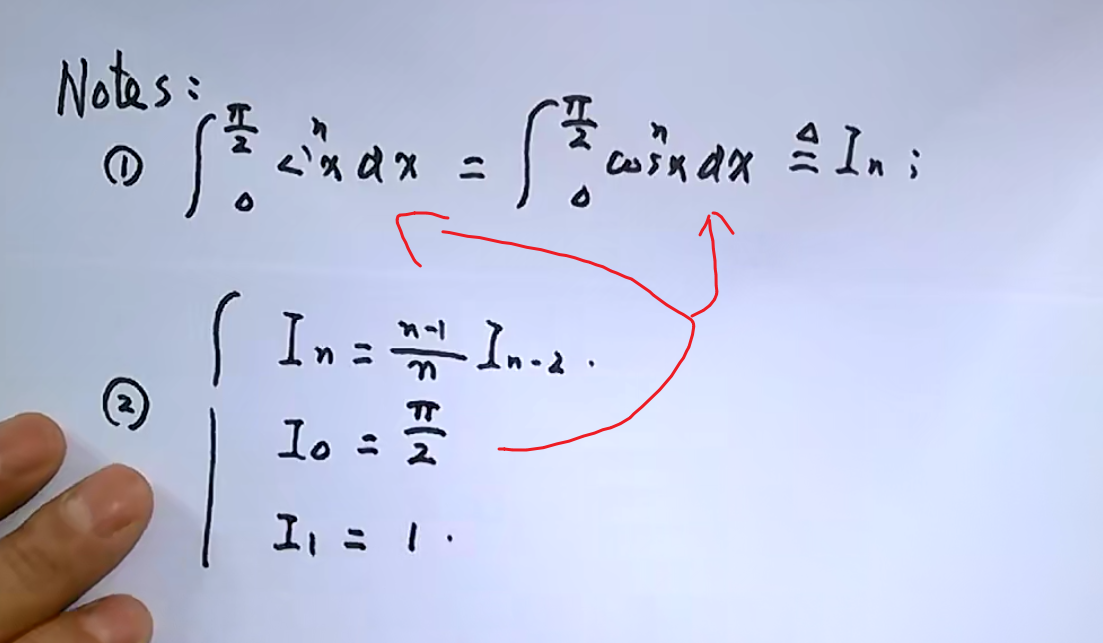 Notes:
① ∫₀^{π/2} sinⁿx dx = ∫₀^{π/2} cosⁿx dx ≜ Iₙ;
② { Iₙ = (n-1)/n Iₙ₋₂.
I₀ = π/2
I₁ = 1.